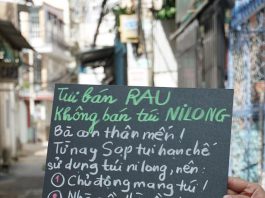 Tui bán RAU
Không bán túi NILONG
Bà con thân mến!
Từ nay Sop tui hạn chế
sử dụng túi nilong, nên:
① Chủ động mang túi!